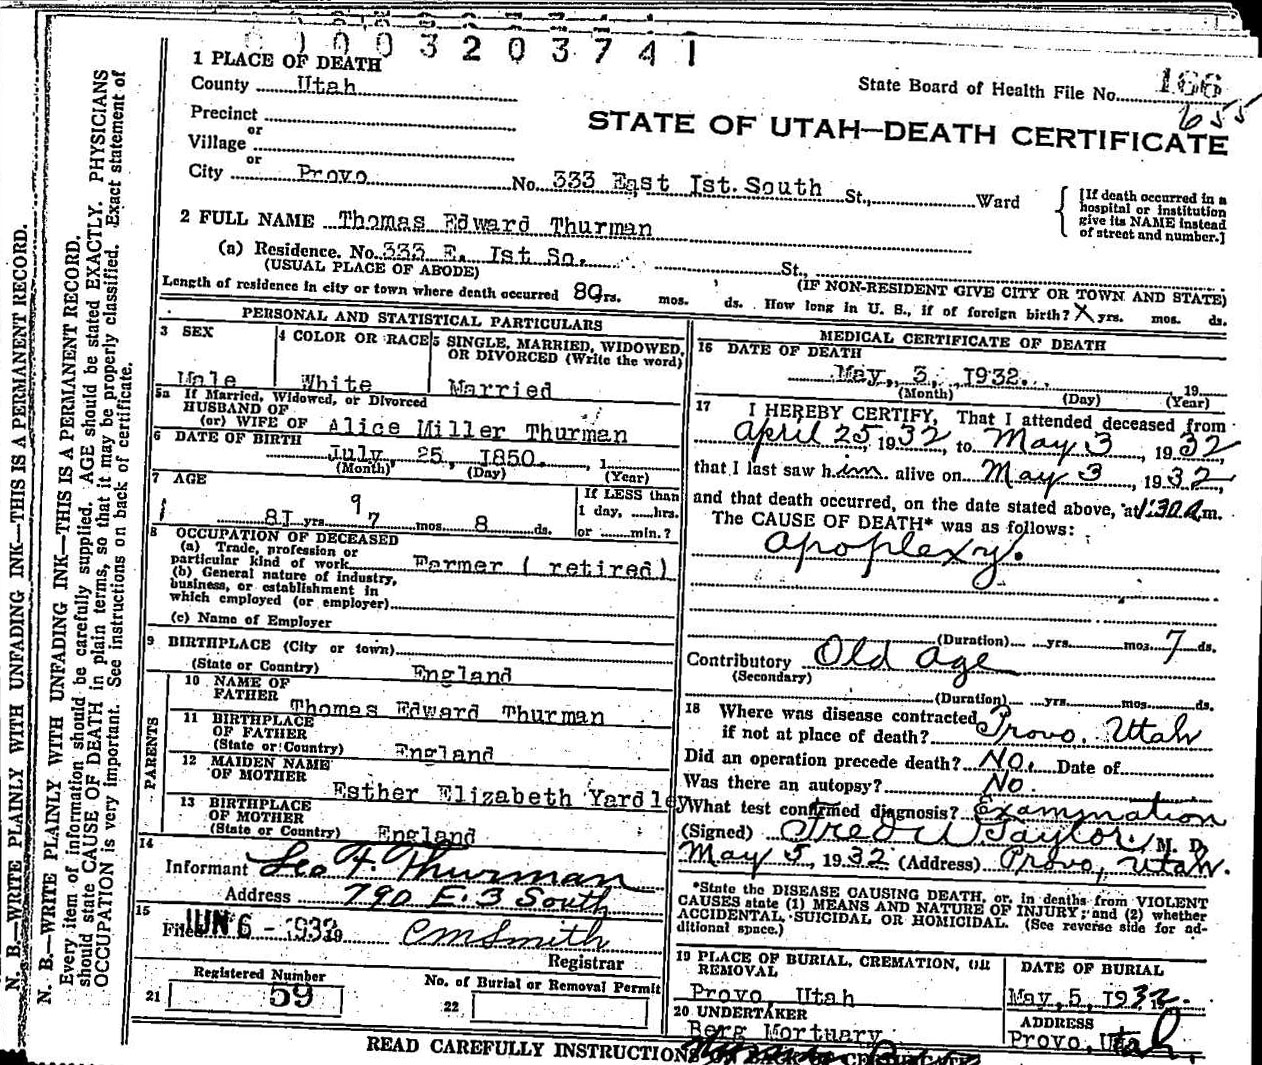 0003203741
1 PLACE OF DEATH
County Utah
State Board of Health File No. 166
655
Precinct
or
Village
or
STATE OF UTAH—DEATH CERTIFICATE
City Provo No. 333 East Ist. South St., Ward
{ [If death occurred in a hospital or institution give its NAME instead of street and number.]
2 FULL NAME Thomas Edward Thurman
(a) Residence. No. 333 E. Ist So. St.,
(USUAL PLACE OF ABODE) (IF NON-RESIDENT GIVE CITY OR TOWN AND STATE)
Length of residence in city or town where death occurred 80 yrs. mos. ds. How long in U. S., if of foreign birth? X yrs. mos. ds.
PERSONAL AND STATISTICAL PARTICULARS
3 SEX
Male
4 COLOR OR RACE
White
5 SINGLE, MARRIED, WIDOWED,
OR DIVORCED (Write the word)
Married
5a If Married, Widowed, or Divorced
HUSBAND OF
(or) WIFE OF Alice Miller Thurman
6 DATE OF BIRTH
July, 25, 1850. , 1
(Month) (Day) (Year)
7 AGE
If LESS than
1 day, hrs.
or min.?
9
8I yrs. 7 mos. 8 ds.
8 OCCUPATION OF DECEASED
(a) Trade, profession or
particular kind of work Farmer ( retired)
(b) General nature of industry,
business, or establishment in
which employed (or employer)
(c) Name of Employer
9 BIRTHPLACE (City or town)
(State or Country) England
PARENTS
10 NAME OF
FATHER Thomas Edward Thurman
11 BIRTHPLACE
OF FATHER
(State or Country) England
12 MAIDEN NAME
OF MOTHER Esther Elizabeth Yardley
13 BIRTHPLACE
OF MOTHER
(State or Country) England
14
Informant Leo F. Thurman
Address 790 E. 3 South
15
Filed JUN 6 - 1932 19 CM Smith
Registrar
Registered Number
21 59
No. of Burial or Removal Permit
22
MEDICAL CERTIFICATE OF DEATH
16 DATE OF DEATH
May, 3, 1932. 19
(Month) (Day) (Year)
17 I HEREBY CERTIFY, That I attended deceased from
April 25, 1932, to May 3, 1932,
that I last saw him alive on May 3, 1932,
and that death occurred, on the date stated above, at 1:30 A.m.
The CAUSE OF DEATH* was as follows:
Apoplexy.
(Duration) yrs. mos. 7 ds.
Contributory Old age
(Secondary)
(Duration) yrs. mos. ds.
18 Where was disease contracted
if not at place of death? Provo, Utah
Did an operation precede death? No. Date of
Was there an autopsy? No.
What test confirmed diagnosis? Examination
(Signed) Fred W Taylor, M. D.
May 5, 1932 (Address) Provo, Utah.
*State the DISEASE CAUSING DEATH, or, in deaths from VIOLENT
CAUSES state (1) MEANS AND NATURE OF INJURY; and (2) whether
ACCIDENTAL, SUICIDAL OR HOMICIDAL. (See reverse side for ad-
ditional space.)
19 PLACE OF BURIAL, CREMATION, OR
REMOVAL
Provo, Utah
DATE OF BURIAL
May, 5, 1932.
20 UNDERTAKER
Berg Mortuary
ADDRESS
Provo, Utah.
READ CAREFULLY INSTRUCTIONS ON BACK OF CERTIFICATE
N. B.—WRITE PLAINLY WITH UNFADING INK—THIS IS A PERMANENT RECORD.
N. B.—WRITE PLAINLY WITH UNFADING INK—THIS IS A PERMANENT RECORD.
Every item of information should be carefully supplied. AGE should be stated EXACTLY. PHYSICIANS
should state CAUSE OF DEATH in plain terms, so that it may be properly classified. Exact statement of
OCCUPATION is very important. See instructions on back of certificate.